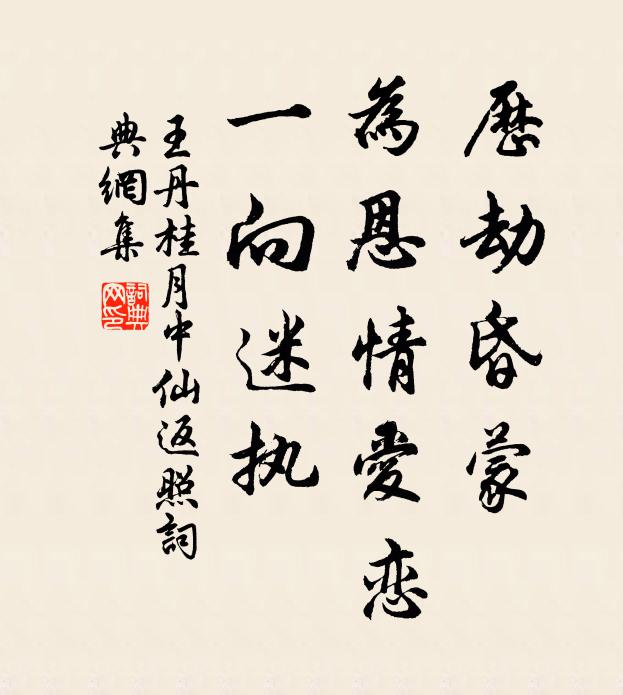 歷劫昏蒙
為恩情愛恋
一向迷执
王丹桂月中仙返照詞
典網集
詞典网印